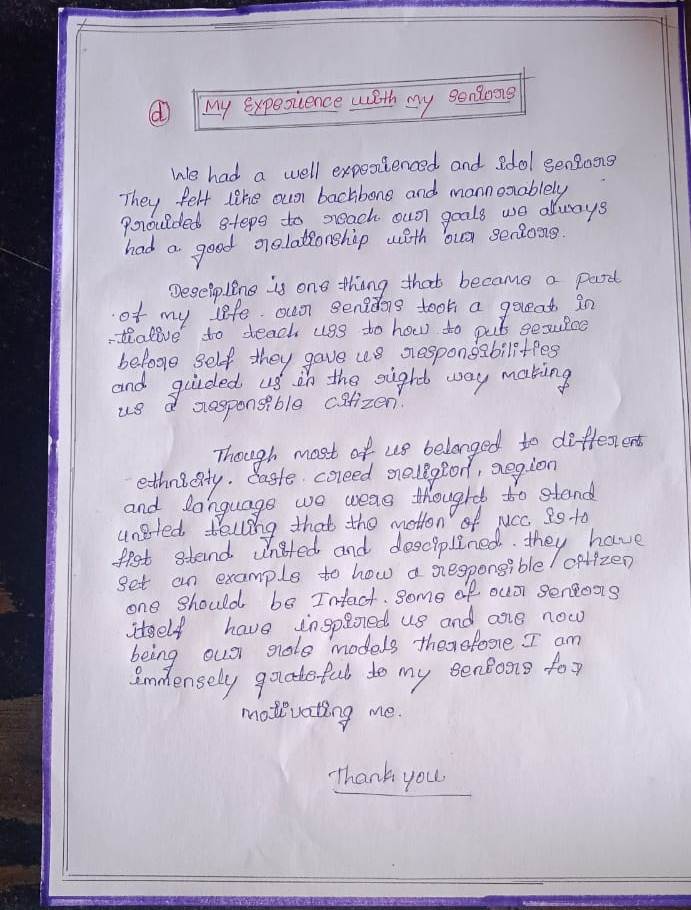 d
My Experience with my seniors
We had a well experienced and idol seniors
They felt like our backbone and mannerablely
Provided steps to reach our goals we always
had a good relationship with our seniors.
Descipline is one thing that became a part
of my life. our seniors took a great in
-tiative to teach uss to how to put service
before self they gave us responsibilities
and guided us in the right way making
us a responsible citizen.
Though most of us belonged to different
ethnicity. caste. creed religion, region
and language we weae thought to stand
united telling that the motton of NCC is to
fist stand united and desciplined. they have
set an example to how a responsible citizen
one should be Infact. some of our seniors
itself have inspired us and are now
being our role models therefore I am
immensely grateful to my seniors for
motivating me.
Thank you